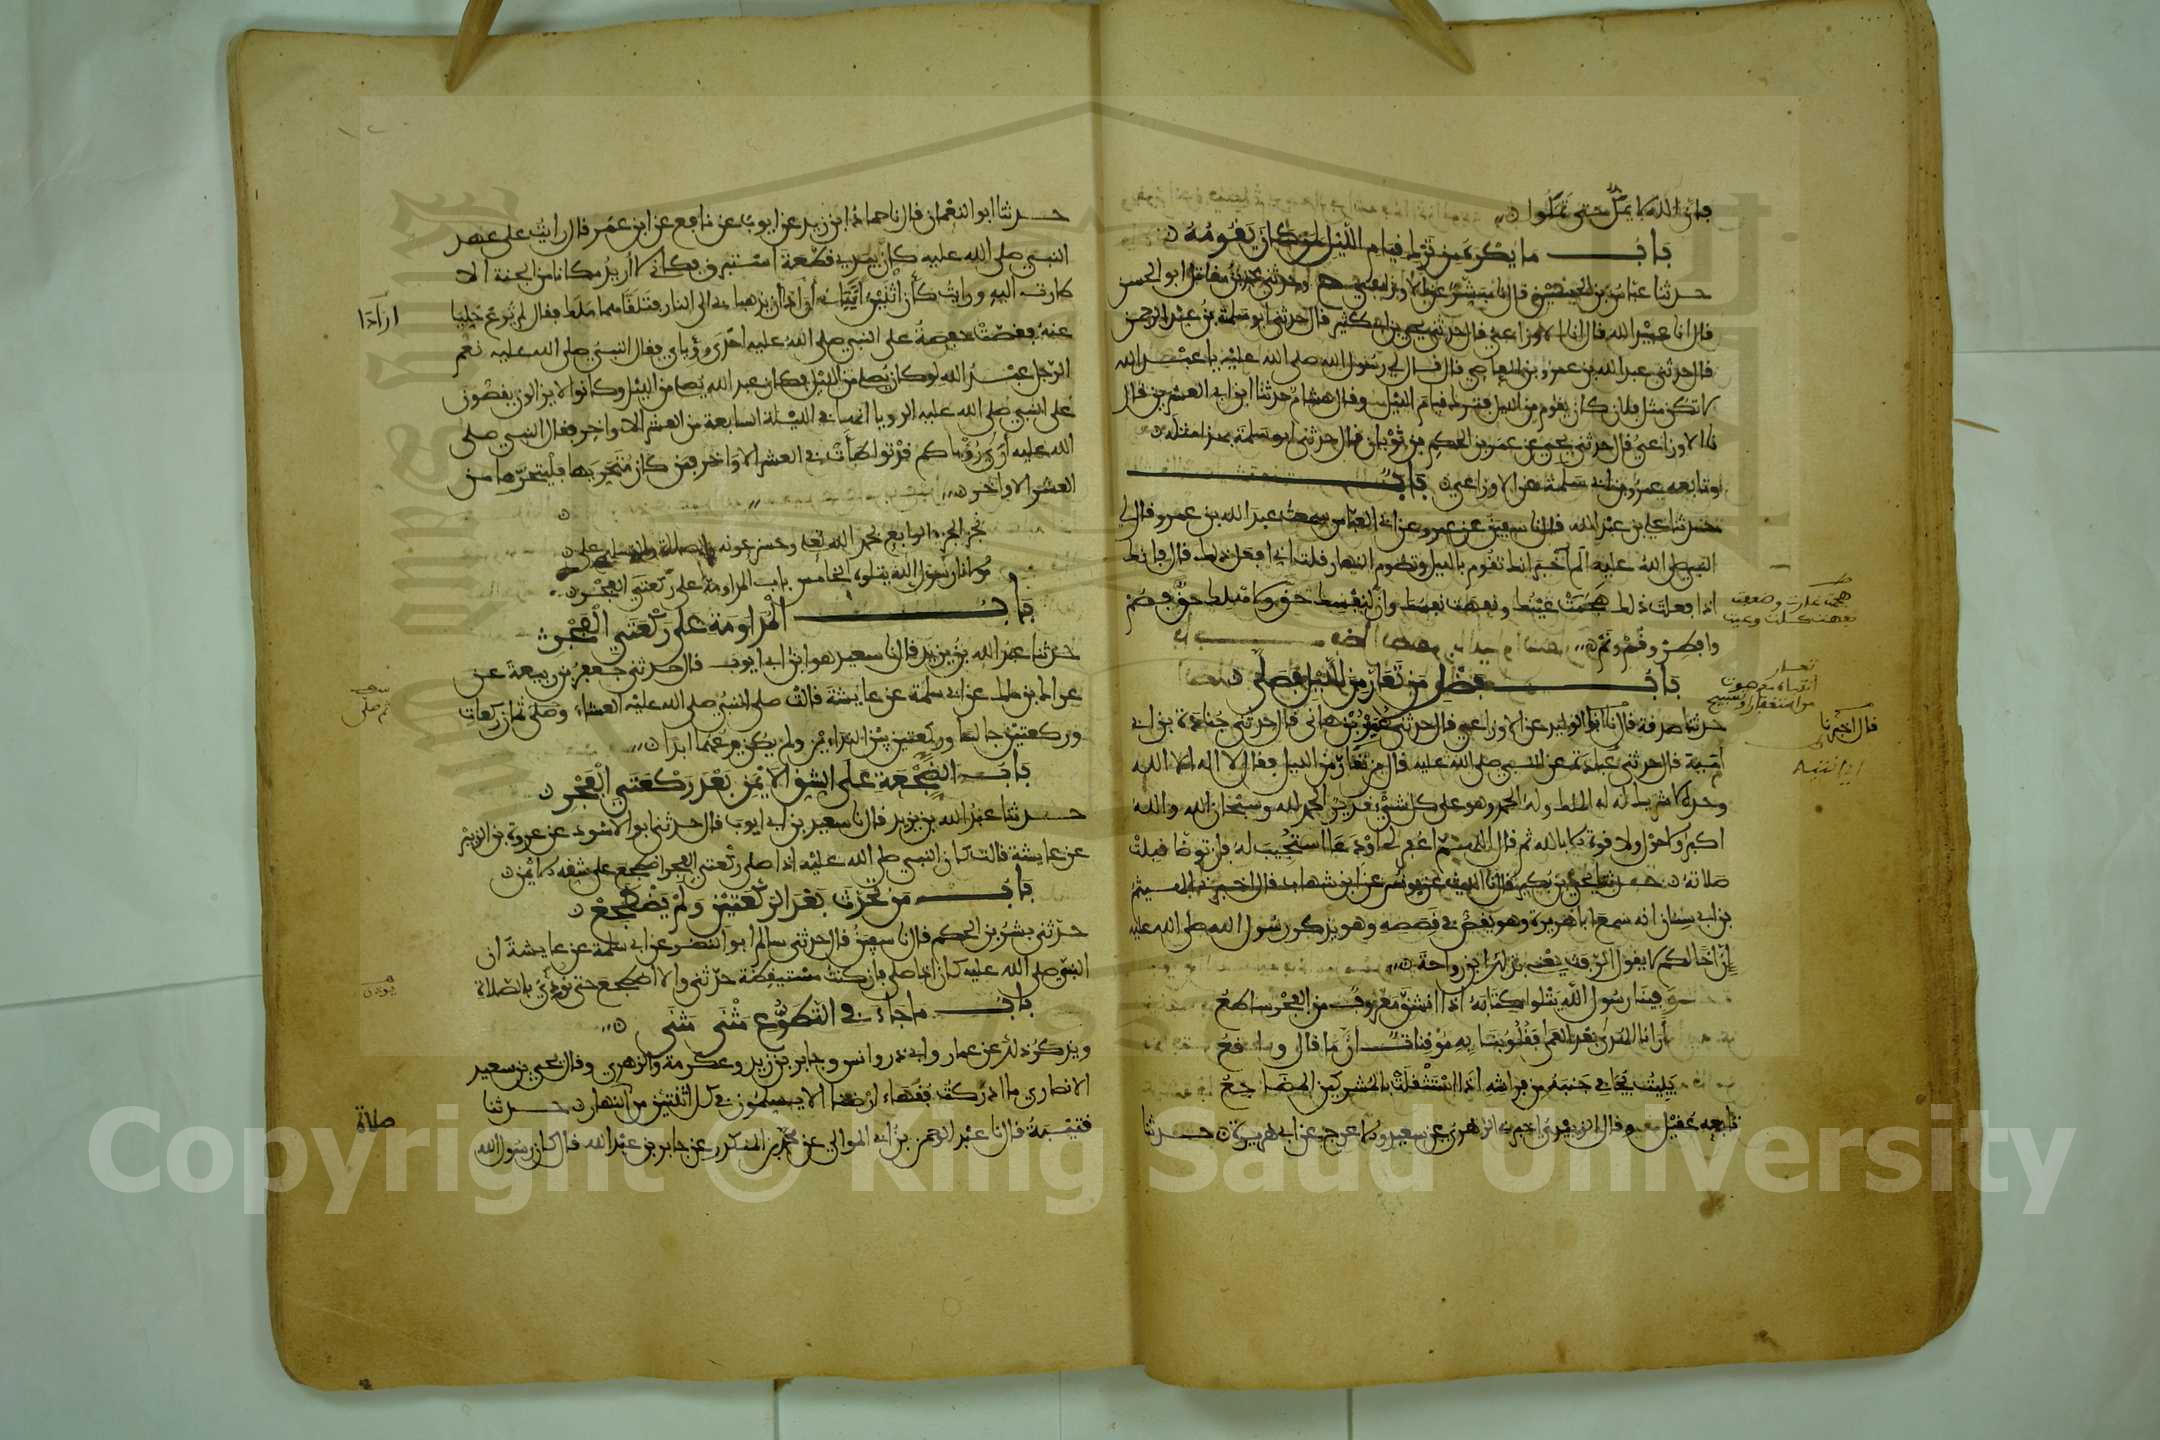 فإن الله لا يمل حتى تملوا
باب ما يكره من ترك قيام الليل لمن كان يقومه
حدثنا عباس بن الحسين قال نا مبشر عن الاوزاعي ح وحدثني محمد بن مقاتل ابو الحسن
قال انا عبد الله قال انا الاوزاعي قال حدثني يحيى بن ابي كثير قال حدثني ابو سلمة بن عبد الرحمن
قال حدثني عبد الله بن عمرو بن العاصي قال قال لي رسول الله صلى الله عليه يا عبد الله
لا تكن مثل فلان كان يقوم من الليل فترك قيام الليل وقال هشام حدثنا ابن ابي العشرين قال
نا الاوزاعي قال حدثني يحيى عن عمر بن الحكم بن ثوبان قال حدثني ابو سلمة بهذا مثله
وتابعه عمرو بن ابي سلمة عن الاوزاعي باب
حدثنا علي بن عبد الله قال نا سفين عن عمرو عن ابي العباس سمعت عبد الله بن عمرو قال لي
النبي صلى الله عليه ألم أخبر انك تقوم بالليل وتصوم النهار قلت اني افعل ذلك قال فإنك
اذا فعلت ذلك هجمت عينك ونفهت نفسك وان لنفسك حق ولاهلك حق فصم
وافطر وقم ونم
باب فضل من تعار من الليل فصلى
حدثنا صدقة قال نا الوليد عن الاوزاعي قال حدثني عمير بن هاني قال حدثني جنادة بن ابي
أمية قال حدثني عبادة عن النبي صلى الله عليه قال من تعار من الليل فقال لا اله الا الله
وحده لا شريك له له الملك وله الحمد وهو على كل شيء قدير الحمد لله وسبحان الله والله
اكبر ولا حول ولا قوة الا بالله ثم قال اللهم اغفر لي أو دعا استجيب له فإن توضا قبلت
صلاته حدثنا يحيى بن بكير قال نا الليث عن يونس عن ابن شهاب قال اخبرني الهيثم
بن ابي سنان انه سمع ابا هريرة وهو يقص في قصصه وهو يذكر رسول الله صلى الله عليه
إن أخا لكم لا يقول الرفث يعني بذلك ابن رواحة
وفينا رسول الله يتلوا كتابه اذا انشق معروف من الفجر ساطع
أرانا الهدى بعد العمى فقلوبنا به موقنات أن ما قال واقع
يبيت يجافي جنبه عن فراشه اذا استثقلت بالمشركين المضاجع
تابعه عقيل وقال الزبيدي اخبرني الزهري عن سعيد والاعرج عن ابي هريرة حدثنا
هجمت غارت وضعفت
نفهت كلت وعيت
قال اخبرنا
حدثنا ابو النعمان قال نا حماد بن زيد عن ايوب عن نافع عن ابن عمر قال رايت على عهد
النبي صلى الله عليه كأن بيدي قطعة استبرق فكاني لا أريد مكانا من الجنة الا
طارت اليه ورايت كأن اثنين أتياني أرادا أن يذهبا بي الى النار فتلقاهما ملك فقال لم ترع خليا
عنه فقصت حفصة على النبي صلى الله عليه احدى رؤياي فقال النبي صلى الله عليه نعم
الرجل عبد الله لو كان يصلي من الليل فكان عبد الله يصلي من الليل وكانوا لا يزالون يقصون
على النبي صلى الله عليه الرويا انها في الليلة السابعة من العشر الاواخر فقال النبي صلى
الله عليه أرى رؤياكم قد تواطأت في العشر الاواخر فمن كان متحريها فليتحرها من
العشر الاواخر
نجز الجزء الرابع بحمد الله تعلى وحسن عونه والصلاة والتسليم على
سيدنا رسول الله يتلوه الخامس باب المداومة على ركعتي الفجر
باب المداومة على ركعتي الفجر
حدثنا عبد الله بن يزيد قال نا سعيد هو ابن ابي ايوب قال حدثني جعفر بن ربيعة عن
عراك بن ملك عن ابي سلمة عن عايشة قالت صلى النبي صلى الله عليه العشاء وصلى ثمان ركعات
وركعتين جالسا وركعتين بين النداءين ولم يكن يدعهما ابدا
باب الضجعة على الشق الايمن بعد ركعتي الفجر
حدثنا عبد الله بن يزيد قال نا سعيد بن ابي ايوب قال حدثني ابو الاسود عن عروة بن الزبير
عن عايشة قالت كان النبي صلى الله عليه اذا صلى ركعتي الفجر اضطجع على شقه الايمن
باب من تحدث بعد الركعتين ولم يضطجع
حدثني بشر بن الحكم قال نا سفين قال حدثني سالم ابو النضر عن ابي سلمة عن عايشة ان
النبي صلى الله عليه كان اذا صلى فإن كنت مستيقظة حدثني والا اضطجع حتى نوذي بالصلاة
باب ما جاء في التطوع مثنى مثنى
ويذكر ذلك عن عمار وابي ذر وانس وجابر بن زيد وعكرمة والزهري وقال يحيى بن سعيد
الانصاري ما ادركت فقهاء ارضنا الا يسلمون في كل اثنتين من النهار حدثنا
قتيبة قال نا عبد الرحمن بن ابي الموالي عن محمد بن المنكدر عن جابر بن عبد الله قال كان رسول الله
ارادا
ثم صلى
يوذن
صلاة
Copyright © King Saud University